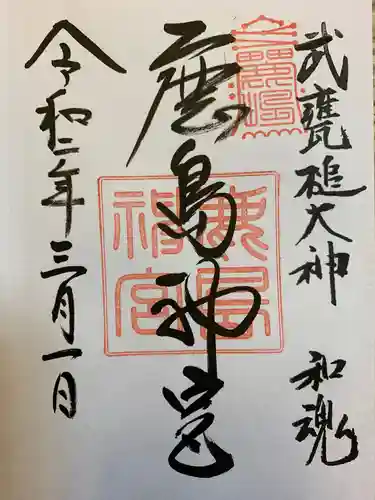 武甕槌大神 和魂
鹿島神宮
令和二年三月一日
鹿島神宮